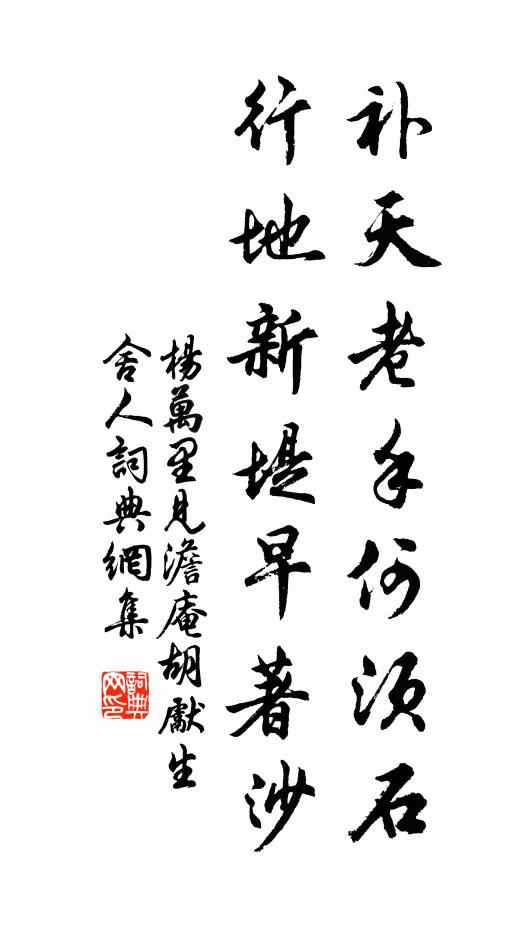 补天老手何须石
行地新堤早著沙
楊萬里見澹庵胡獻生
舍人詞典網集
詞典
网印